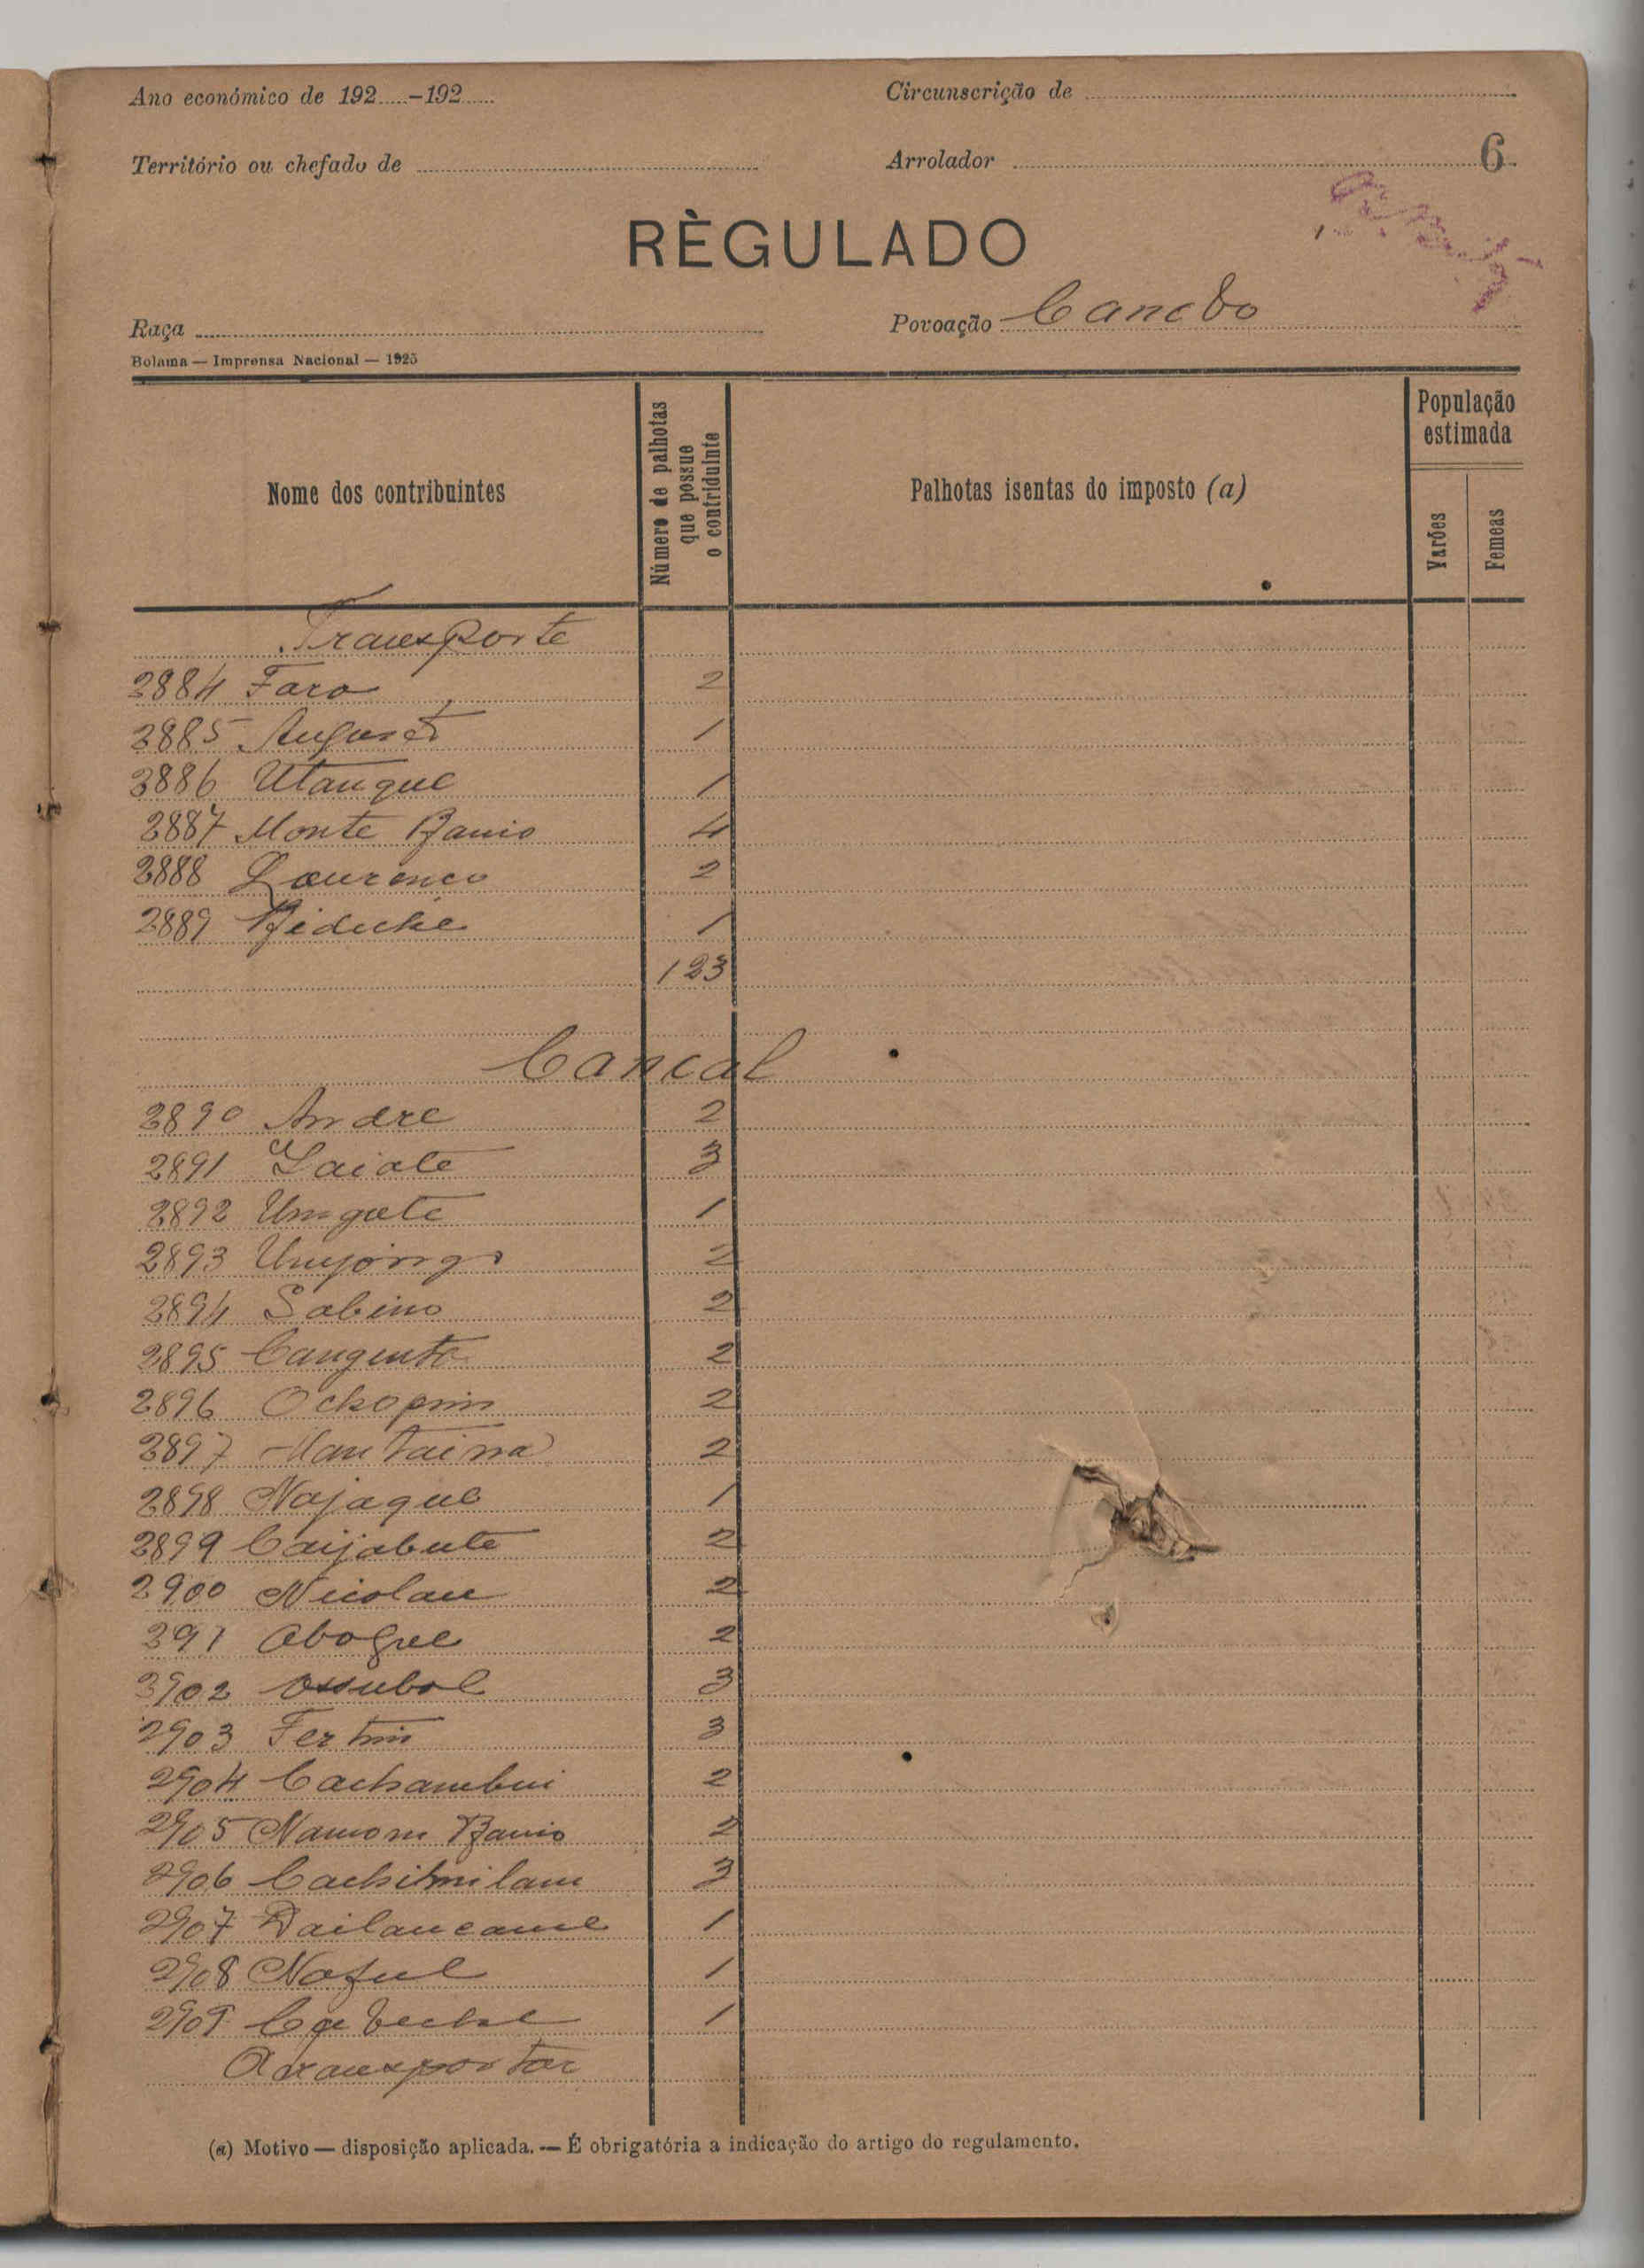 Ano económico de 192.....-192..... Circunscrição de
6
Território ou chefado de Arrolador
RÈGULADO
Raça Povoação Canebo
Bolama — Imprensa Nacional — 1925
Nome dos contribuintes
Número de palhotas que possue o contriduinte
Palhotas isentas do imposto (a)
População estimada
Varões Femeas
Transporte
2884 Faro 2
2885 Augusto 1
2886 Utanque 1
2887 Monte Banio 4
2888 Lourenco 2
2889 Biduke 1
123
Cancal
2890 Andre 2
2891 Laiate 3
2892 Umgate 1
2893 2
2894 Sabino 2
2895 Cangento 2
2896 Ochopim 2
2897 2
2898 Najaque 1
2899 Caijabute 2
2900 Nicolau 2
291 Abogue 2
2902 Ossubol 3
2903 Fertim 3
2904 Cachambui 2
2905 Namom Banio 2
2906 Cachitmilam 3
2907 Dailancame 1
2908 Naful 1
2909 1
A transportar
(a) Motivo — disposição aplicada. — É obrigatória a indicação do artigo do regulamento.